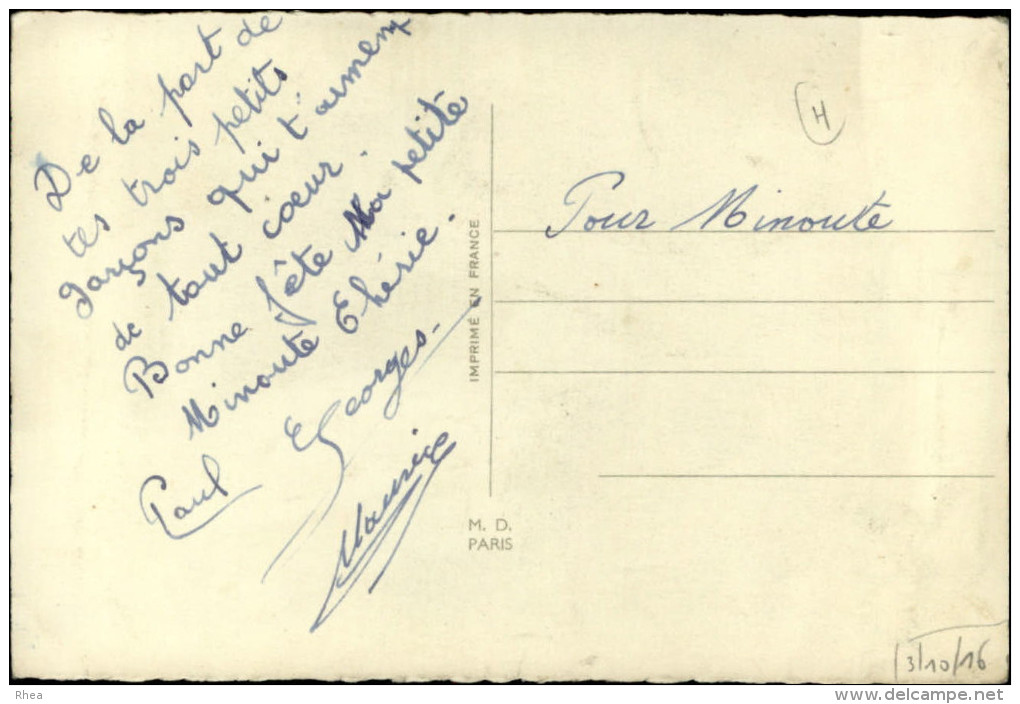 De la part de
tes trois petits
garçons qui t'aiment
de tout coeur.
Bonne fête Ma petite
Minoute Chérie.
Paul Georges
Maurice
Pour Minoute
H
IMPRIMÉ EN FRANCE
M. D.
PARIS
13/10/16
Rhea
delcampe.net